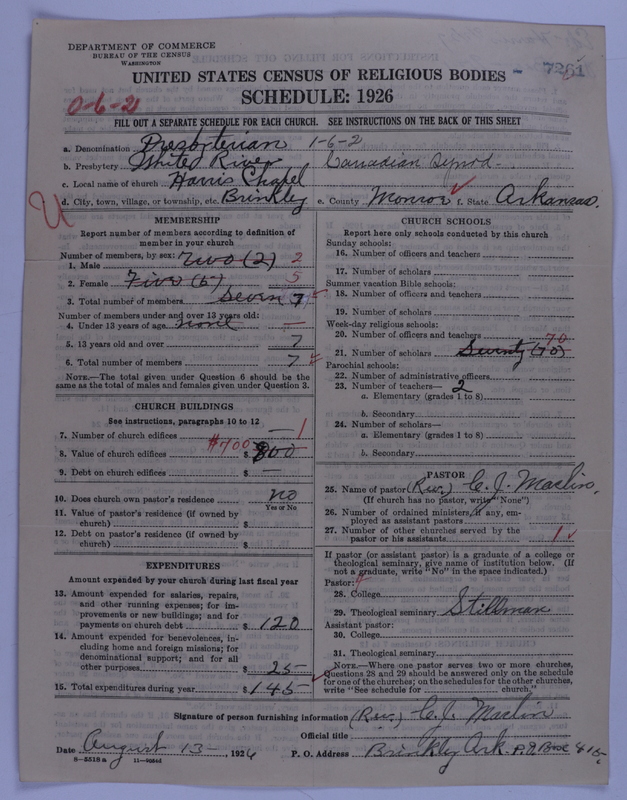 DEPARTMENT OF COMMERCE
BUREAU OF THE CENSUS
WASHINGTON
7261
UNITED STATES CENSUS OF RELIGIOUS BODIES
SCHEDULE: 1926
0-6-2
FILL OUT A SEPARATE SCHEDULE FOR EACH CHURCH. SEE INSTRUCTIONS ON THE BACK OF THIS SHEET
a. Denomination Presbyterian 1-6-2
b. Presbytery White River Canadian Synod
c. Local name of church Harris Chapel
d. City, town, village, or township, etc. Brinkley e. County Monroe f. State Arkansas.
MEMBERSHIP
Report number of members according to definition of
member in your church
Number of members, by sex:
1. Male Two (2) 2
2. Female Five (5) 5
3. Total number of members Seven 7
Number of members under and over 13 years old:
4. Under 13 years of age none —
5. 13 years old and over 7
6. Total number of members 7
NOTE.—The total given under Question 6 should be the
same as the total of males and females given under Question 3.
CHURCH BUILDINGS
See instructions, paragraphs 10 to 12
7. Number of church edifices — 1
8. Value of church edifices #700 $ 800
9. Debt on church edifices $ —
10. Does church own pastor's residence no
Yes or No
11. Value of pastor's residence (if owned by
church) $
12. Debt on pastor's residence (if owned by
church) $
EXPENDITURES
Amount expended by your church during last fiscal year
13. Amount expended for salaries, repairs,
and other running expenses; for im-
provements or new buildings; and for
payments on church debt $ 120
14. Amount expended for benevolences, in-
cluding home and foreign missions; for
denominational support; and for all
other purposes $ 25
15. Total expenditures during year $ 145
CHURCH SCHOOLS
Report here only schools conducted by this church
Sunday schools:
16. Number of officers and teachers
17. Number of scholars
Summer vacation Bible schools:
18. Number of officers and teachers
19. Number of scholars
Week-day religious schools:
20. Number of officers and teachers 70
21. Number of scholars Seventy (70)
Parochial schools:
22. Number of administrative officers
23. Number of teachers— 2
a. Elementary (grades 1 to 8)
b. Secondary
24. Number of scholars—
a. Elementary (grades 1 to 8)
b. Secondary
PASTOR
25. Name of pastor (Rev.) C. J. Maclin,
(If church has no pastor, write "None")
26. Number of ordained ministers, if any, em-
ployed as assistant pastors
27. Number of other churches served by the
pastor or his assistants 1
If pastor (or assistant pastor) is a graduate of a college or
theological seminary, give name of institution below. (If
not a graduate, write "No" in the space indicated.)
Pastor:
28. College
29. Theological seminary Stillman
Assistant pastor:
30. College
31. Theological seminary
NOTE.—Where one pastor serves two or more churches,
Questions 28 and 29 should be answered only on the schedule
for one of the churches; on the schedules for the other churches,
write "See schedule for church."
Signature of person furnishing information (Rev.) C. J. Maclin
Official title
Date August 13-, 1926 P. O. Address Brinkley Ark. P.O. Box 415-
8-5518 A